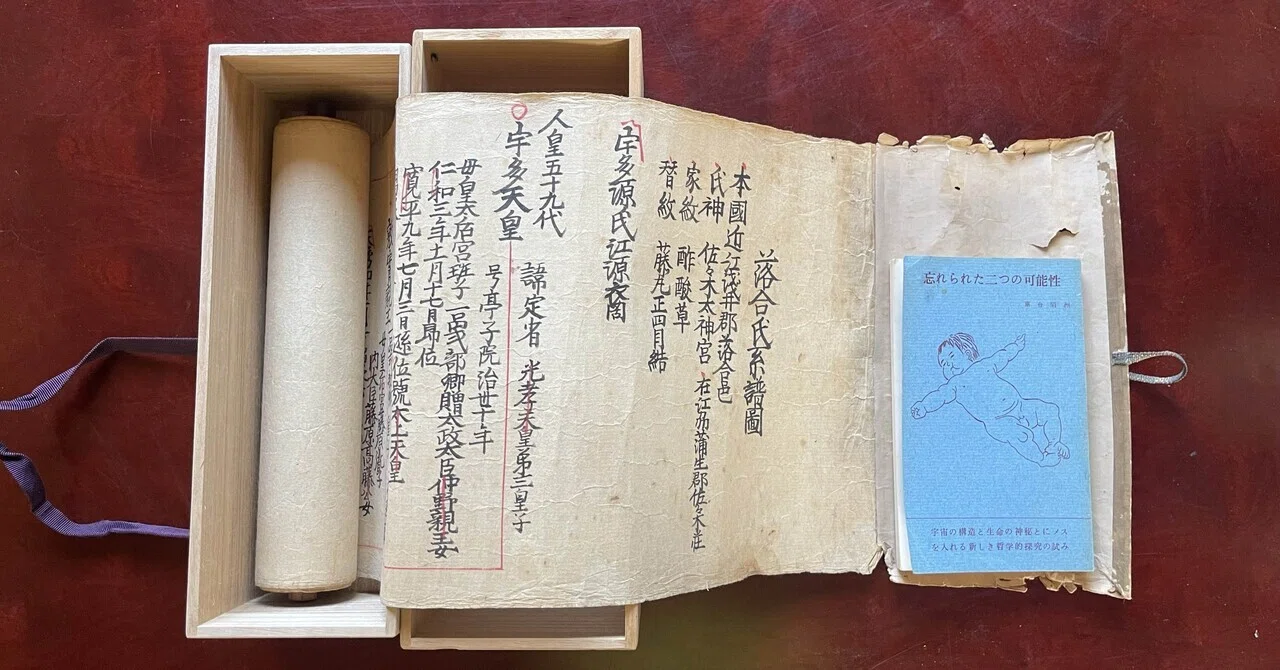 落合氏系譜圖
本國 近江浅井郡落合邑
氏神 佐々木太神宮 在江刕蒲生郡佐々木荘
家紋 酢酸草
替紋 藤丸正四目結
宇多源氏江源
人皇五十九代
宇多天皇 諱定省 光孝天皇第三皇子
号亭子院治世十年
母皇太后宮班子一品式部卿贈太政大臣仲野親王女
仁和三年十一月十七日即位
寛平九年七月三日遜位號太上天皇
内大臣藤原高藤公女
忘れられた二つの可能性
宇宙の構造と生命の神秘とにメス
を入れる新しき哲学的探究の試み